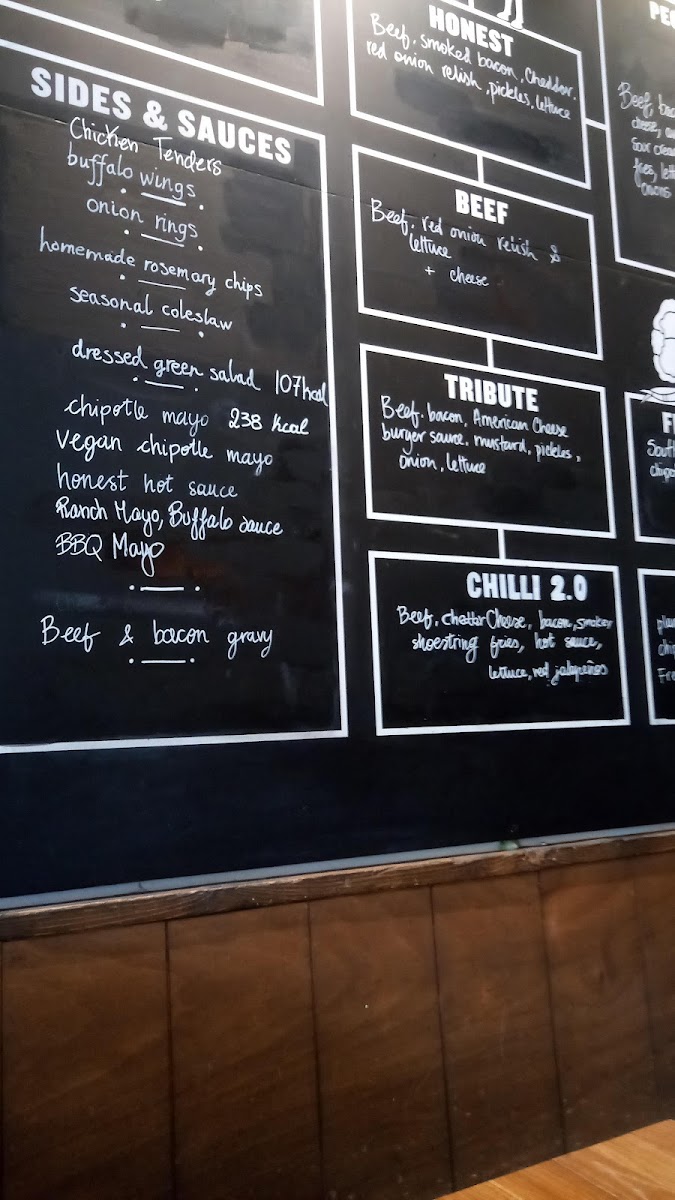 SIDES & SAUCES
Chicken Tenders
buffalo wings
onion rings
homemade rosemary chips
seasonal coleslaw
dressed green salad 107kcal
chipotle mayo 238 kcal
vegan chipotle mayo
honest hot sauce
Ranch Mayo, Buffalo sauce
BBQ Mayo
Beef & bacon gravy
HONEST
Beef, smoked bacon, Cheddar,
red onion relish, pickles, lettuce
BEEF
Beef, red onion relish &
lettuce
+ cheese
TRIBUTE
Beef, bacon, American Cheese
burger sauce, mustard, pickles,
onion, lettuce
CHILLI 2.0
Beef, chettar Cheese, bacon, smokey
shoestring fries, hot sauce,
lettuce, red jalapeños
Beef,
cheese,
sour